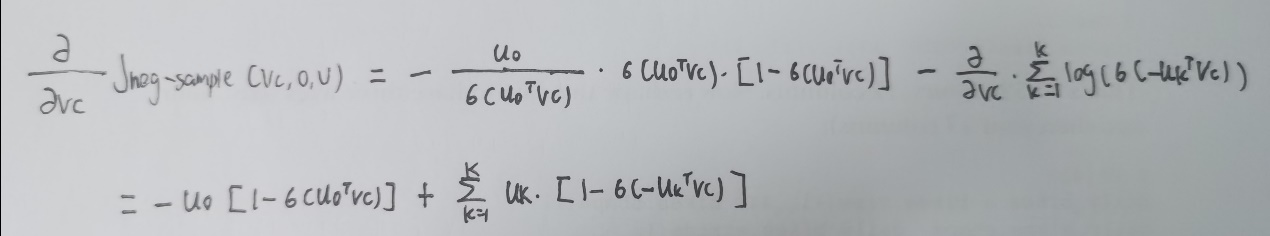 ∂/∂vc Jneg-sample (vc, o, U) = - uo / σ(uoᵀvc) · σ(uoᵀvc) · [1 - σ(uoᵀvc)] - ∂/∂vc · Σ_{k=1}^{K} log(σ(-ukᵀvc))
= - uo [1 - σ(uoᵀvc)] + Σ_{k=1}^{K} uk · [1 - σ(-ukᵀvc)]